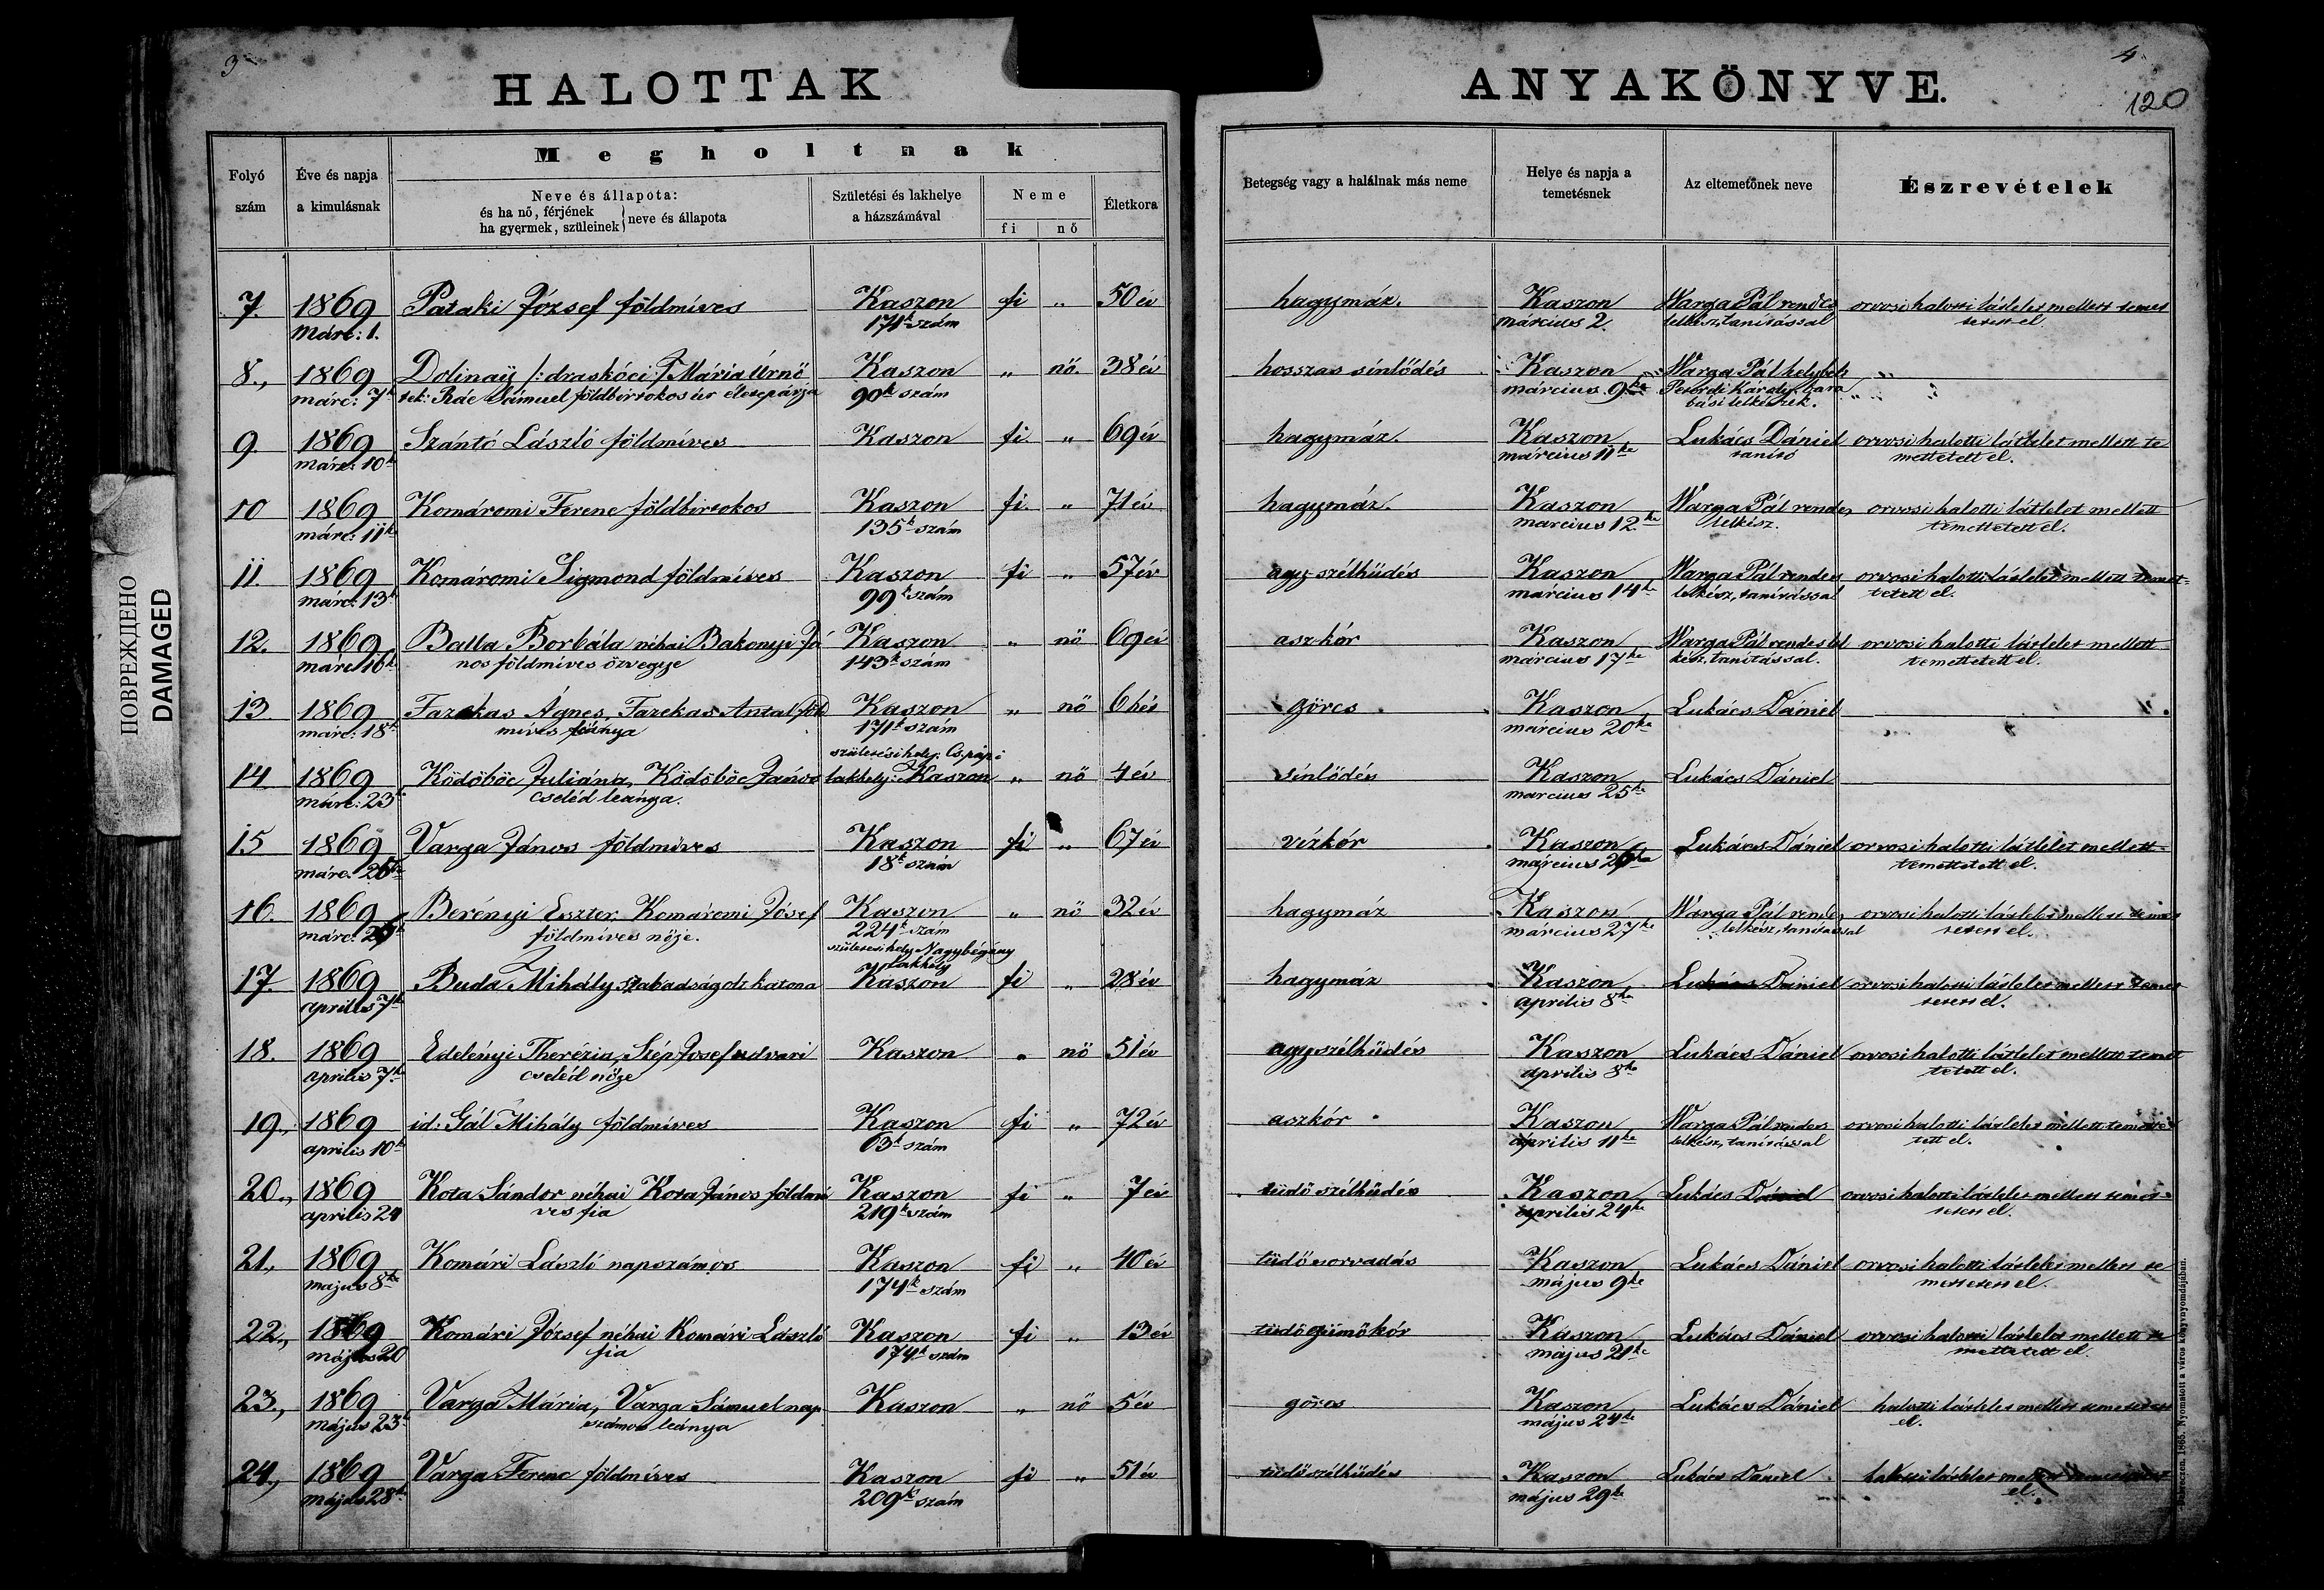 3
HALOTTAK
Folyó szám
Éve és napja a kimulásnak
Megholtnak
Neve és állapota:
és ha nő, férjének
ha gyermek, szüleinek } neve és állapota
Születési és lakhelye a házszámával
Neme
fi
nő
Életkora
7. 1869 Pataki József földmíves Kaszon fi „ 50 év
Márc: 1. 171k szám
8., 1869 Dolinay /: draskóci :/ Mária úrnő Kaszon „ nő. 38 év
márc: 7k tek: Rác Sámuel földbirtokos úr élete párja 90k szám
9. 1869 Szántó László földmíves Kaszon fi. „ 69 év
márc: 10k
10 1869 Komáromi Ferenc földbirtokos Kaszon fi. „ 71 év
márc: 11k 135k szám
11. 1869 Komáromi Sigmond földmíves Kaszon fi „ 57 év
márc: 13k 99k szám
12. 1869 Balla Borbála néhai Bakonyi Já Kaszon „ nő 69 év
márc 16k nos földmíves özvegye 143k szám
13. 1869 Fazekas Ágnes, Fazekas Antal föld Kaszon „ nő 6 hét
marc: 18k míves leánya 171k szám
születési hely: Cs.pápi
14 1869 Ködöböc Juliána, Ködöböc János lakhely: Kaszon „ nő 4 év
márc: 23k cseléd leánya.
15 1869 Varga János földmíves Kaszon fi „ 67 év
márc. 18k szám
16. 1869 Berényi Eszter, Komáromi Jósef Kaszon „ nő 32 év
márc: földmíves nője. 224k szam
születesi hely Nagybégány
lakhely
17. 1869 Buda Mihály szabadságolt katona Kaszon fi „ 28 év
április 7k
18. 1869 Edelényi Therézia, Szép Josef udvari Kaszon „ nő 51 év
április 7k cseléd nője
19., 1869 id: Gál Mihály földmíves Kaszon fi „ 72 év
április 10k 63k szám
20., 1869 Kota Sándor néhai Kota János földmí Kaszon fi „ 7 év
április 24 ves fia 219k szám
21., 1869 Komári László napszámos Kaszon fi „ 40 év
majus 8ka 174k szám
22., 1869 Komári József néhai Komári László Kaszon fi „ 13 év
május 20 fia 174k szám
23., 1869 Varga Mária, Varga Sámuel nap Kaszon „ nő 5 év
május 23k számos leánya
24., 1869 Varga Ferenc földmíves Kaszon fi „ 51 év
május 28k 209k szám
ПОВРЕЖДЕНО
DAMAGED
4
ANYAKÖNYVE.
120
Betegség vagy a halálnak más neme
Helye és napja a temetésnek
Az eltemetőnek neve
Észrevételek
hagymáz. Kaszon Warga Pál rendes orvosi halotti látlelet mellett temet
március 2. lelkész, tanítással tetett el.
hosszas sínlődés Kaszon Warga Pál helybeli „
március 9ka Károly bara „ „ „
bási lelkészek.
hagymáz. Kaszon Lukács Dániel orvosi halotti látlelet mellett te
március 11ke tanító mettetett el.
hagymáz. Kaszon Warga Pál rendes orvosi halotti látlelet mellett
március 12ke lelkész. temettetett el.
agy szélhüdés Kaszon Warga Pál rendes orvosi halotti látlelet mellett temet-
március 14ke lelkész, tanítással tetett el.
aszkór Kaszon Warga Pál rendes lel orvosi halotti látlelet mellett
március 17ke kész, tanítással. temettetett el.
görcs Kaszon Lukács Dániel
március 20ka
sínlődés Kaszon Lukács Dániel
marcius 25ke
vízkór Kaszon Lukács Dániel orvosi halotti látlelet mellett
március temettetett el.
hagymáz Kaszon Warga Pál rendes orvosi halotti látlelet mellett temet
március 27ke lelkész, tanítással tetett el.
hagymáz Kaszon Lukács Dániel orvosi halotti látlelet mellett temet
április 8ka tetett el.
agyszélhüdés Kaszon Lukács Dániel orvosi halotti látlelet mellett temet
április 8ka tetett el.
aszkór Kaszon Warga Pál rendes orvosi halotti látlelet mellett temette
április 11ke lelkész, tanítással tett el.
tüdő szélhüdés Kaszon Lukács Dániel orvosi halotti látlelet mellett temet-
április 24ke tetett el.
tüdő sorvadás Kaszon Lukács Dániel orvosi halotti látlelet mellett te
május 9ke mettetett el.
tüdő gümőkór Kaszon Lukács Dániel orvosi halotti látlelet mellett te
május 21ke mettetett el.
görcs Kaszon Lukács Dániel halotti látlelet mellett temettetett
május 24ke el.
tüdő szélhüdés Kaszon Lukács Dániel halotti látlelet mellett temettetett
május 29ke el.
Debreczen, 1865. Nyomatott a város könyvnyomdájában.